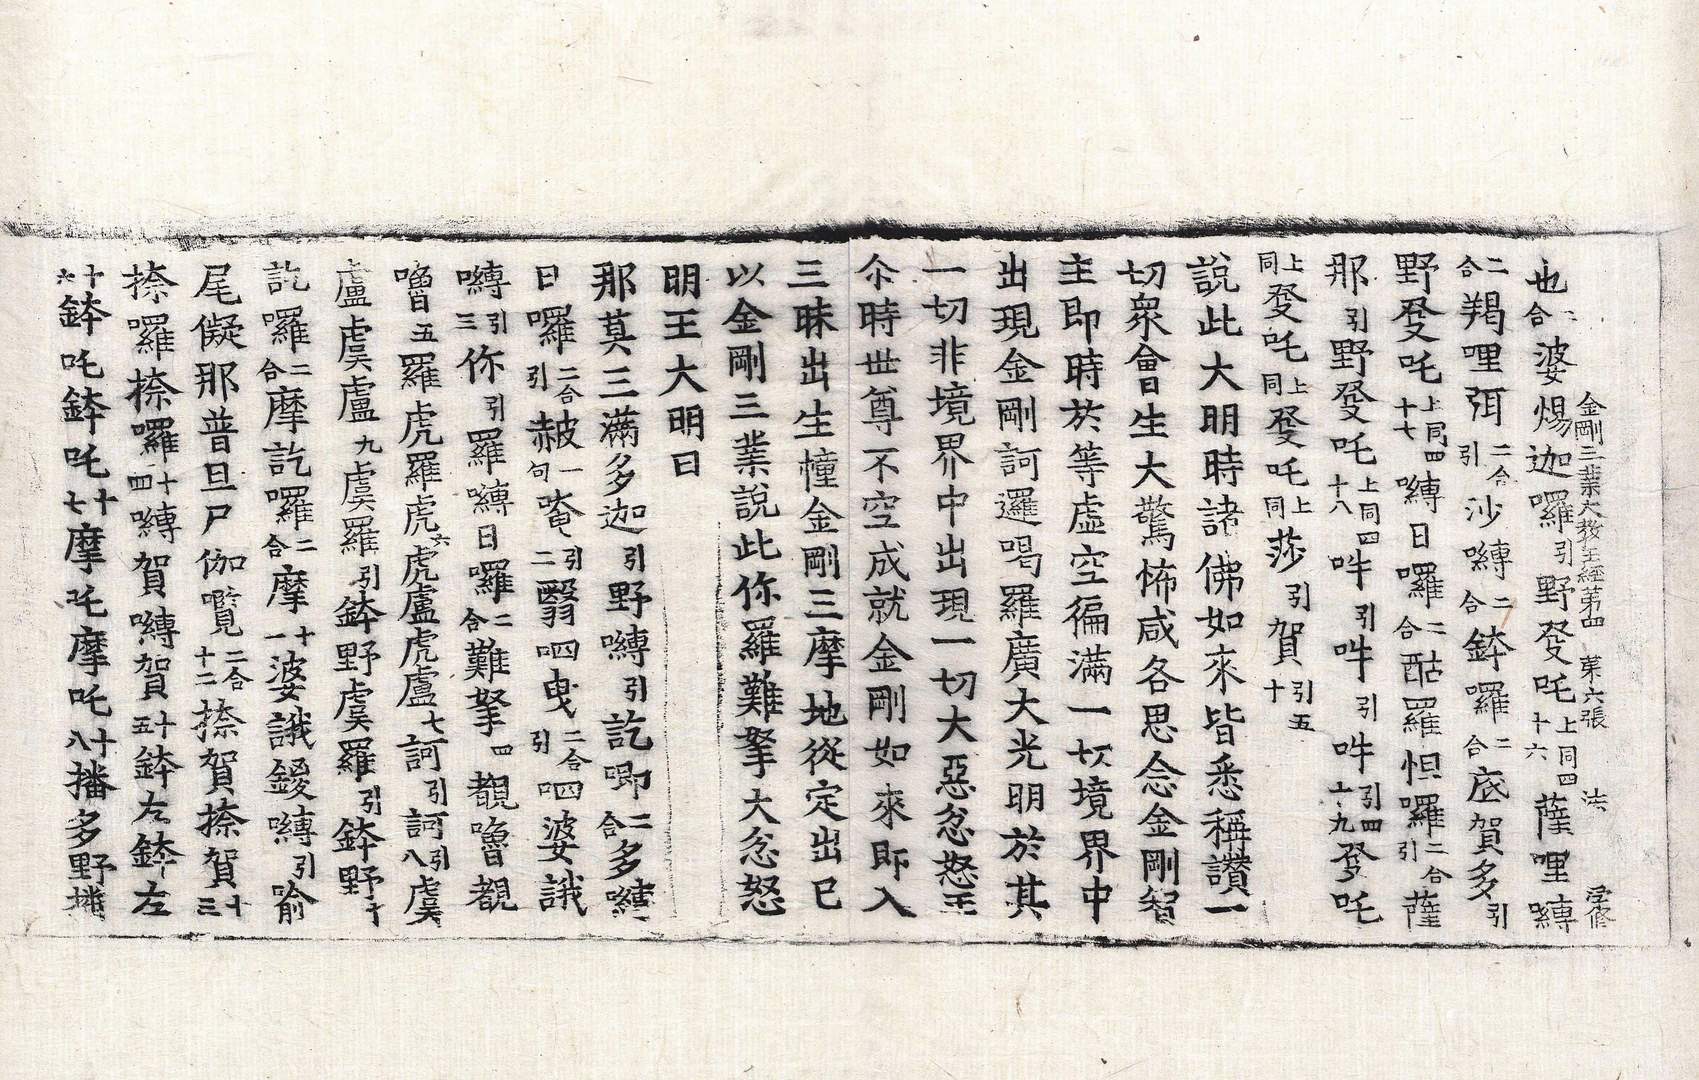 金剛三業大教王經第四　第六張　法　淳修
也二合婆惕迦囉引野癹吒上同四十六薩哩嚩
二合羯哩弭二合引沙嚩二合鉢囉二合底賀多引
野癹吒上同四十七嚩日囉二合酤羅怛囉二合引薩
那引野癹吒上同四十八吽引吽引吽引四十九癹吒
上同癹吒上同癹吒上同莎引賀引五十
說此大明時諸佛如來皆悉稱讚一
切衆會生大驚怖咸各思念金剛智
主即時於等虛空徧滿一切境界中
出現金剛訶邏喝羅廣大光明於其
一切非境界中出現一切大惡忿怒王
尒時世尊不空成就金剛如來即入
三昧出生幢金剛三摩地從定出已
以金剛三業說此你羅難拏大忿怒
明王大明曰
那莫三滿多迦引野嚩引訖唧二合多嚩
日囉二合引赧一句唵引二翳呬曳二合引呬婆誐
嚩引三你引羅嚩日囉二合難拏四覩嚕覩
嚕五羅虎羅虎六虎盧虎盧七訶引訶引八虞
盧虞盧九虞羅引鉢野虞羅引鉢野十
訖囉二合摩訖囉二合摩十一婆誐鍐嚩引喻
尾儗那普旦尸伽覽二合十二捺賀捺賀十三
捺囉捺囉十四嚩賀嚩賀十五鉢左鉢左
十六鉢吒鉢吒十七摩吒摩吒十八播多野播